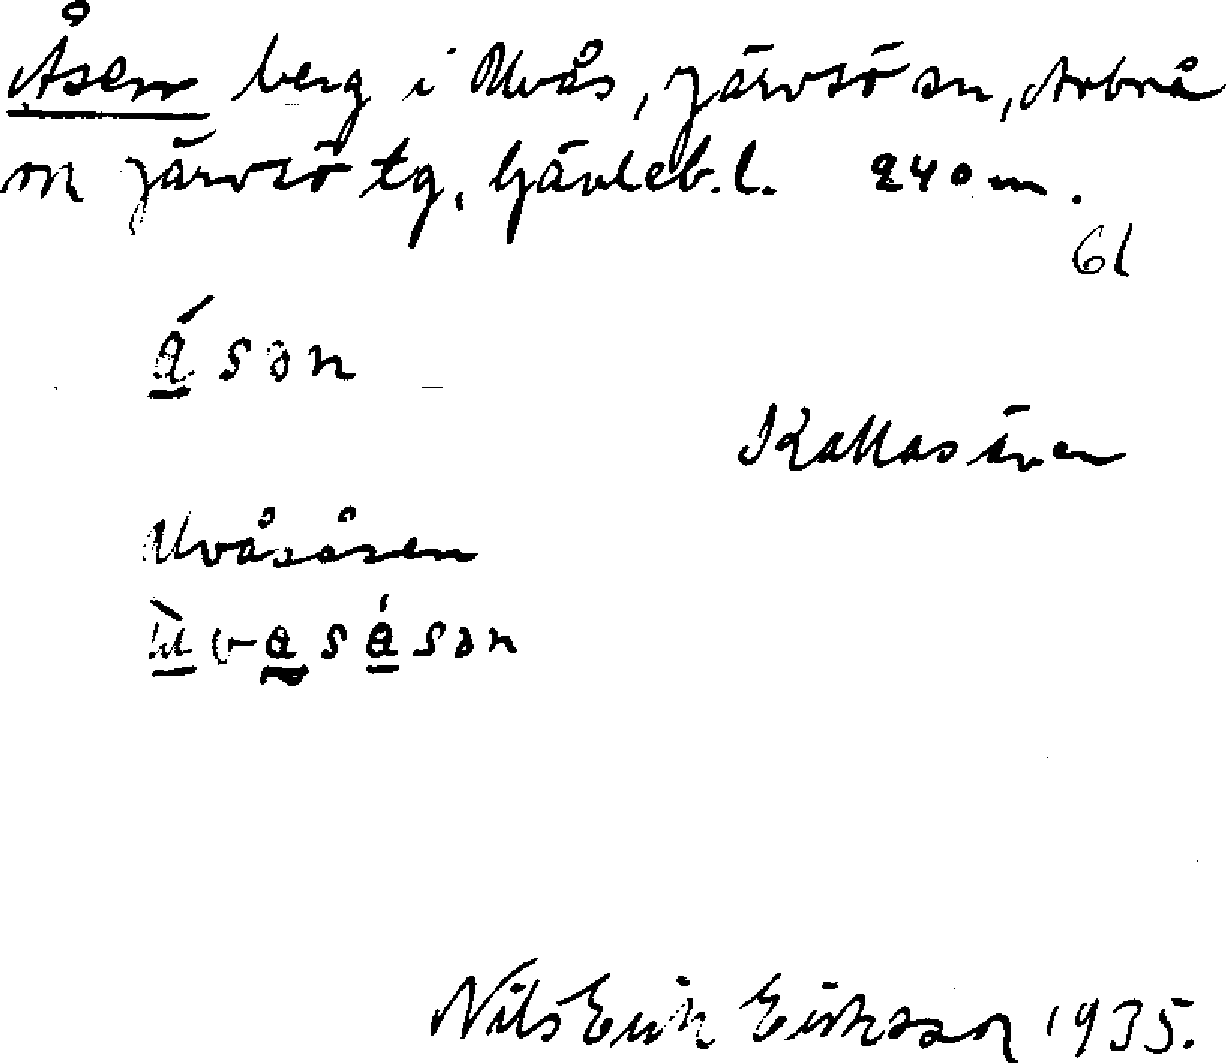 Åsen berg i Uvås, Järvsö sn, Arbrå
m Järvsö tg, Gävleb.l. 240 m.
61
á̲sən
Kallas även
Uvåsåsen
ù̲va̲sá̲sən
Nils Erik Eriksson 1935.